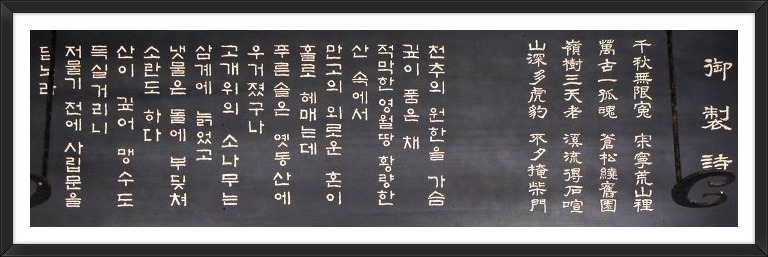 御製詩
千秋無限寃 寂寧荒山裡
萬古一孤魂 蒼松繞舊園
嶺樹三天老 溪流得石喧
山深多虎豹 不夕掩柴門
천추의 원한을 가슴
깊이 품은 채
적막한 영월땅 황량한
산 속에서
만고의 외로운 혼이
홀로 헤매는데
푸른솔은 옛동산에
우거졌구나
고개위의 소나무는
삼계에 늙었고
냇물은 돌에 부딪쳐
소란도 하다
산이 깊어 맹수도
득실거리니
저물기 전에 사립문을
닫노라